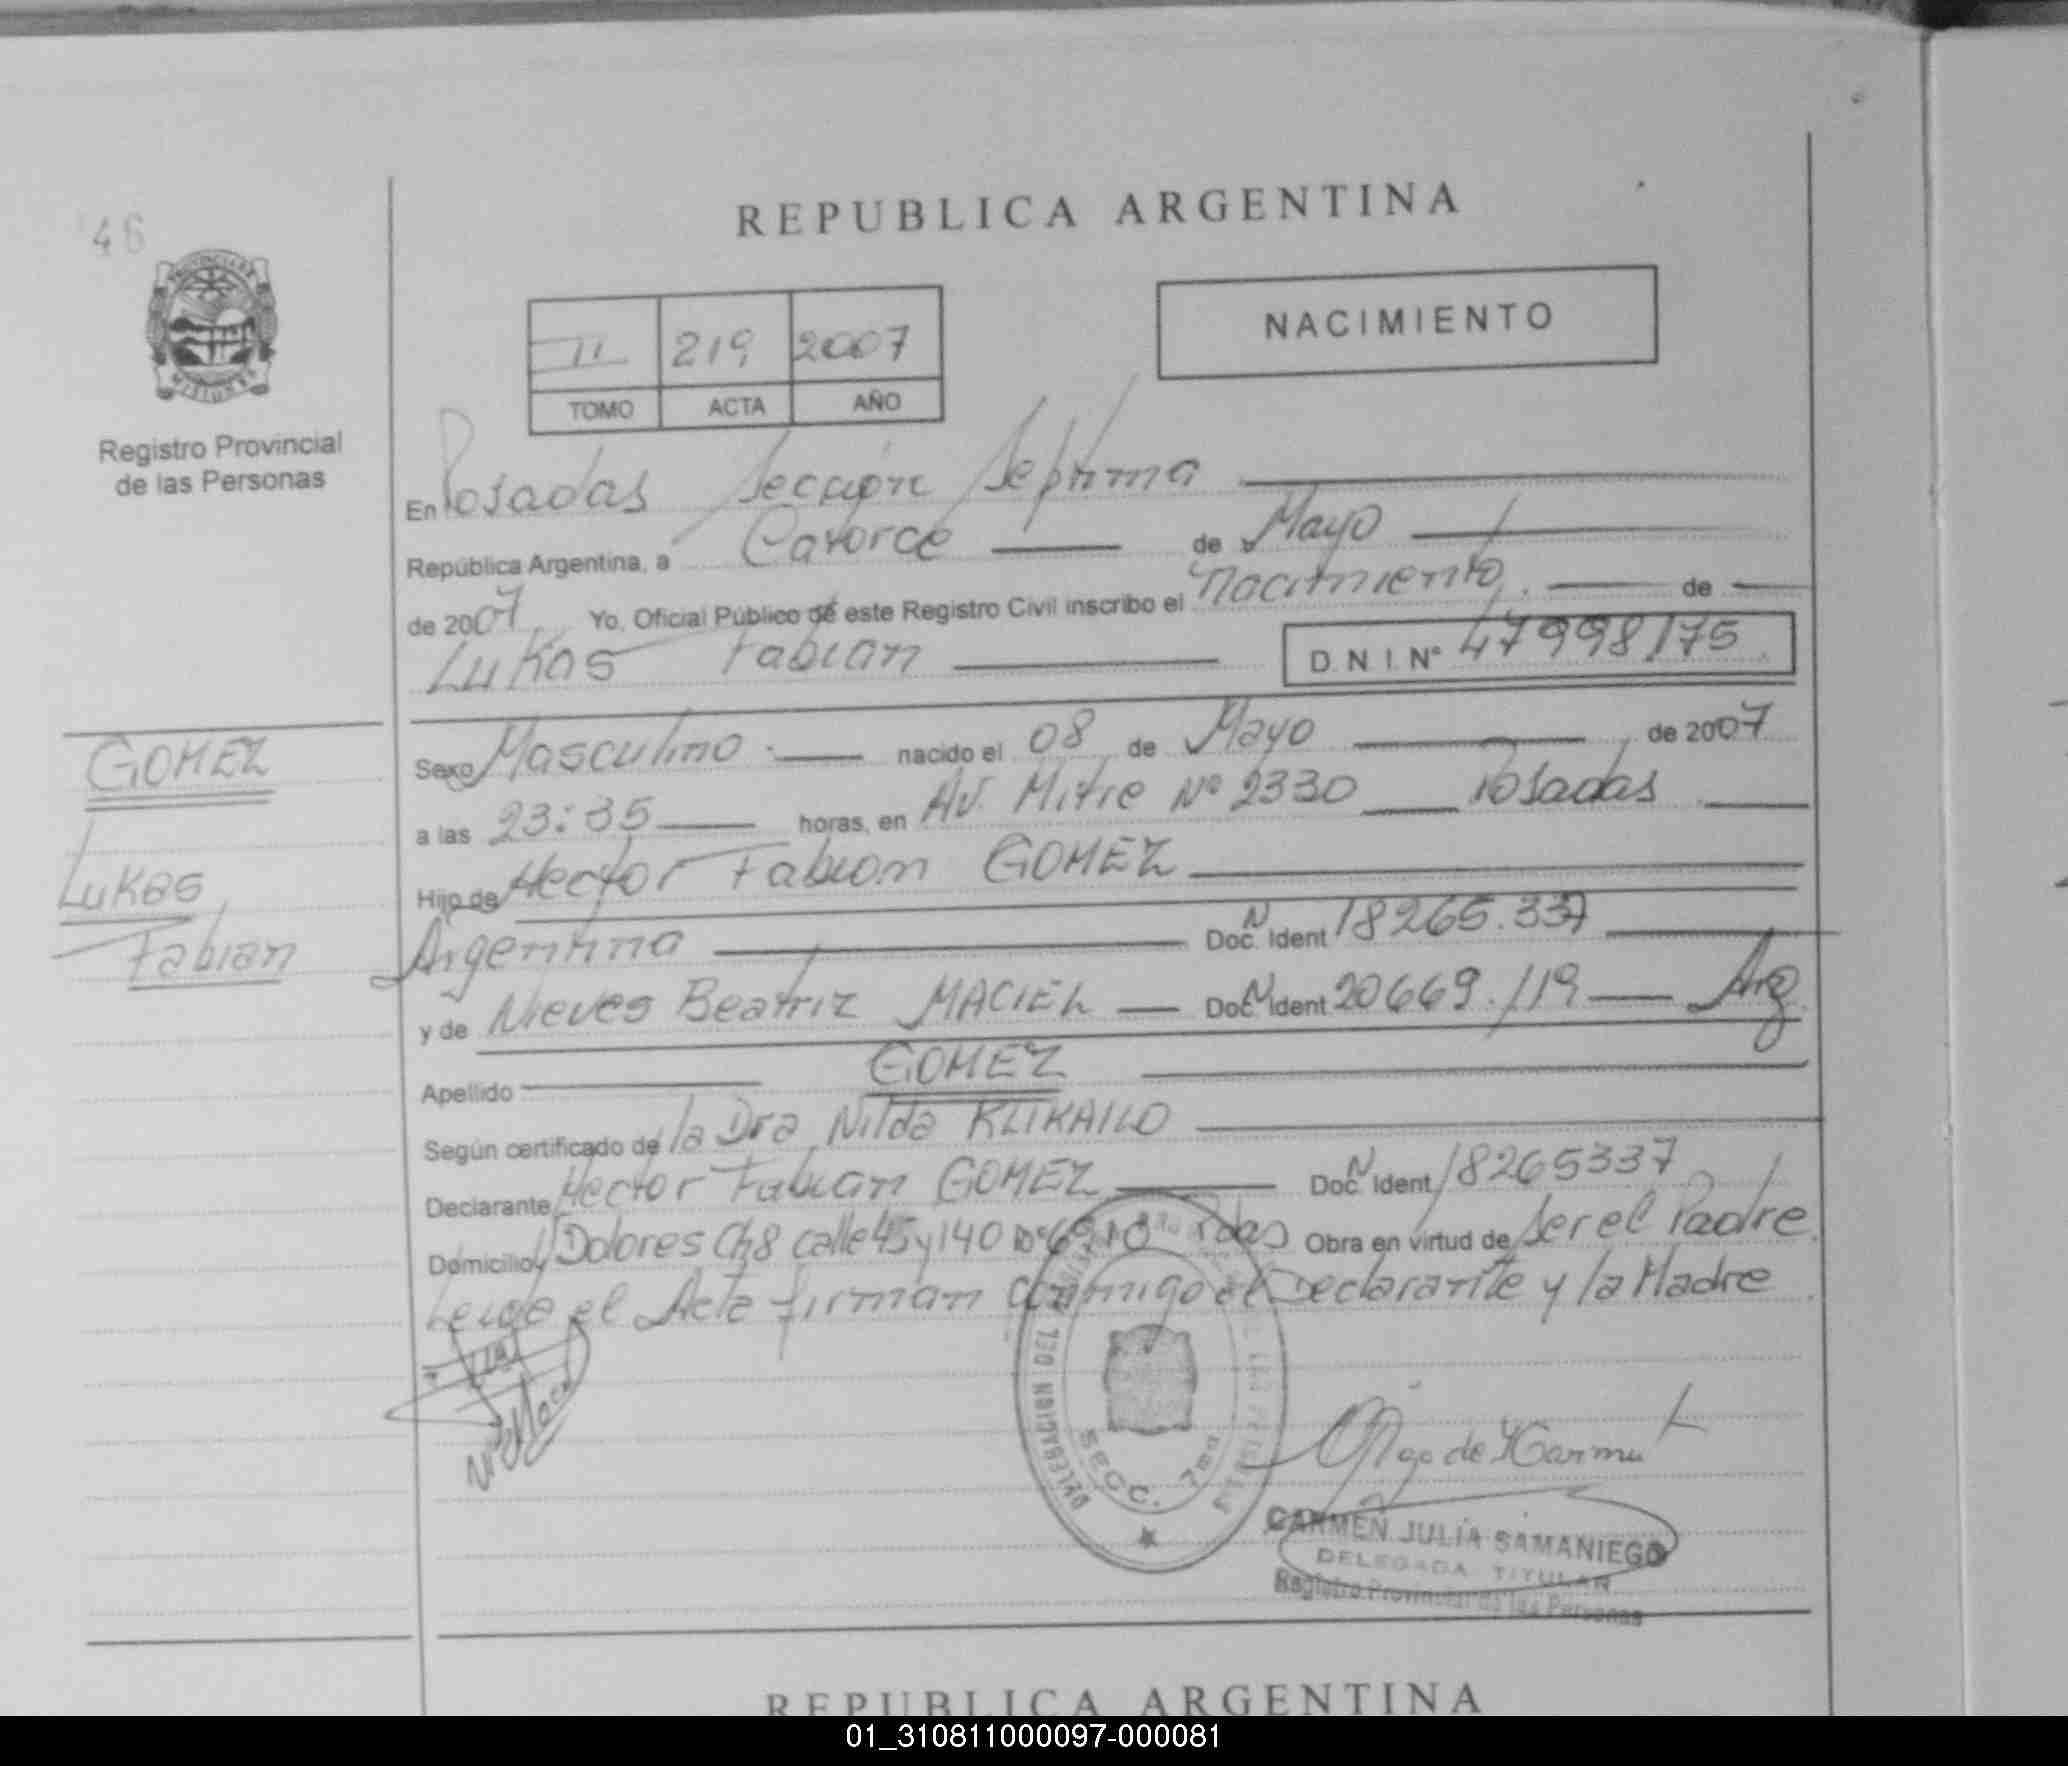 46
REPUBLICA ARGENTINA
NACIMIENTO
II 219 2007
TOMO ACTA AÑO
Registro Provincial
de las Personas
En Posadas Sección Septima
República Argentina, a Catorce de Mayo
de 2007 Yo, Oficial Público de este Registro Civil inscribo el nacimiento de
Lukas Fabian D.N.I. Nº 47998175
GOMEZ
Lukas
Fabian
Sexo Masculino nacido el 08 de Mayo de 2007
a las 23:35 horas, en AV. Mitre Nº 2330 Posadas
Hijo de Hector Fabian GOMEZ
Argentina Doc. Ident N 18265.337
y de Nieves Beatriz MACIEL Doc. Ident N 20669.119 Arg
Apellido GOMEZ
Según certificado de la Dra Nilda KLIKAILO
Declarante Hector Fabian GOMEZ Doc. Ident N 18265337
Domicilio Dolores Ch8 calle 45 y 140 Pdas Obra en virtud de Ser el Padre
Leida el Acta firman conmigo el Declarante y la Madre
DELEGACION DEL
SECC. 7ma
CARMEN JULIA SAMANIEGO
DELEGADA TITULAR
Registro Provincial de las Personas
REPUBLICA ARGENTINA
01_310811000097-000081